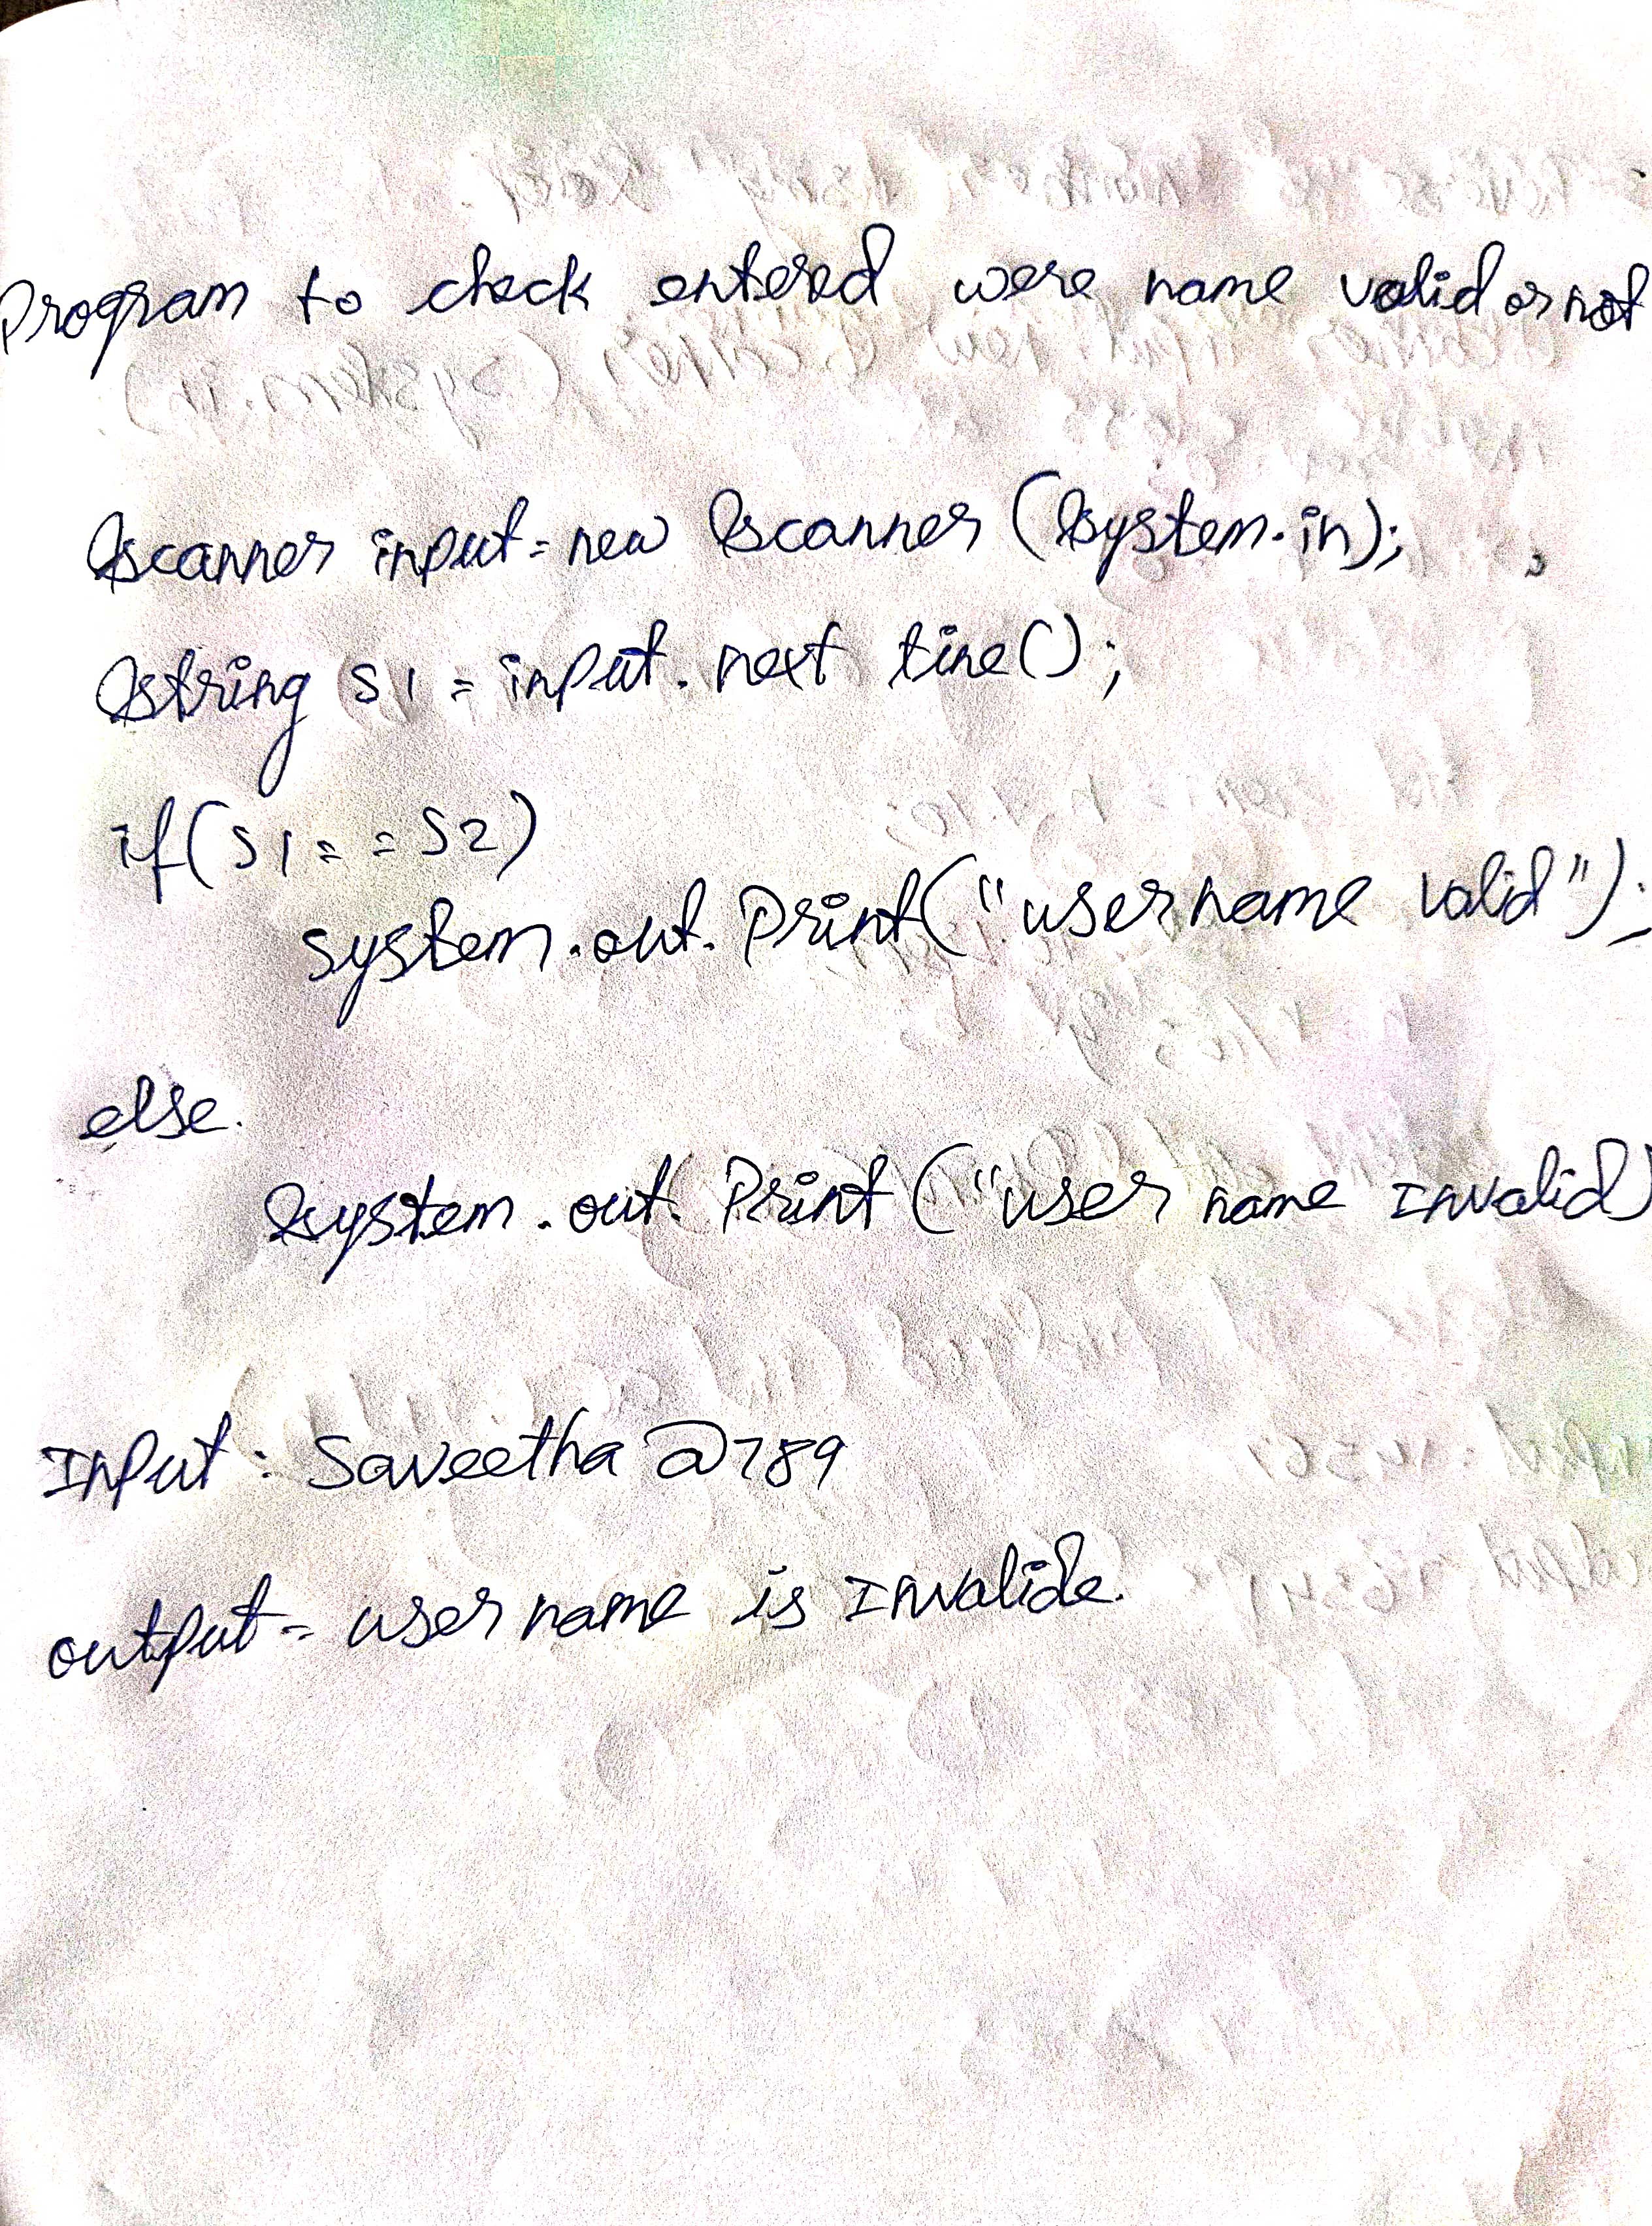 Program to check entered were name valid or not
Scanner input = new Scanner (System.in);
String S1 = input. next line();
if(S1 = = S2)
system.out. Print("username valid");
else.
System.out. Print ("user name Invalid)
Input : Saveetha @789
output = user name is Invalide.